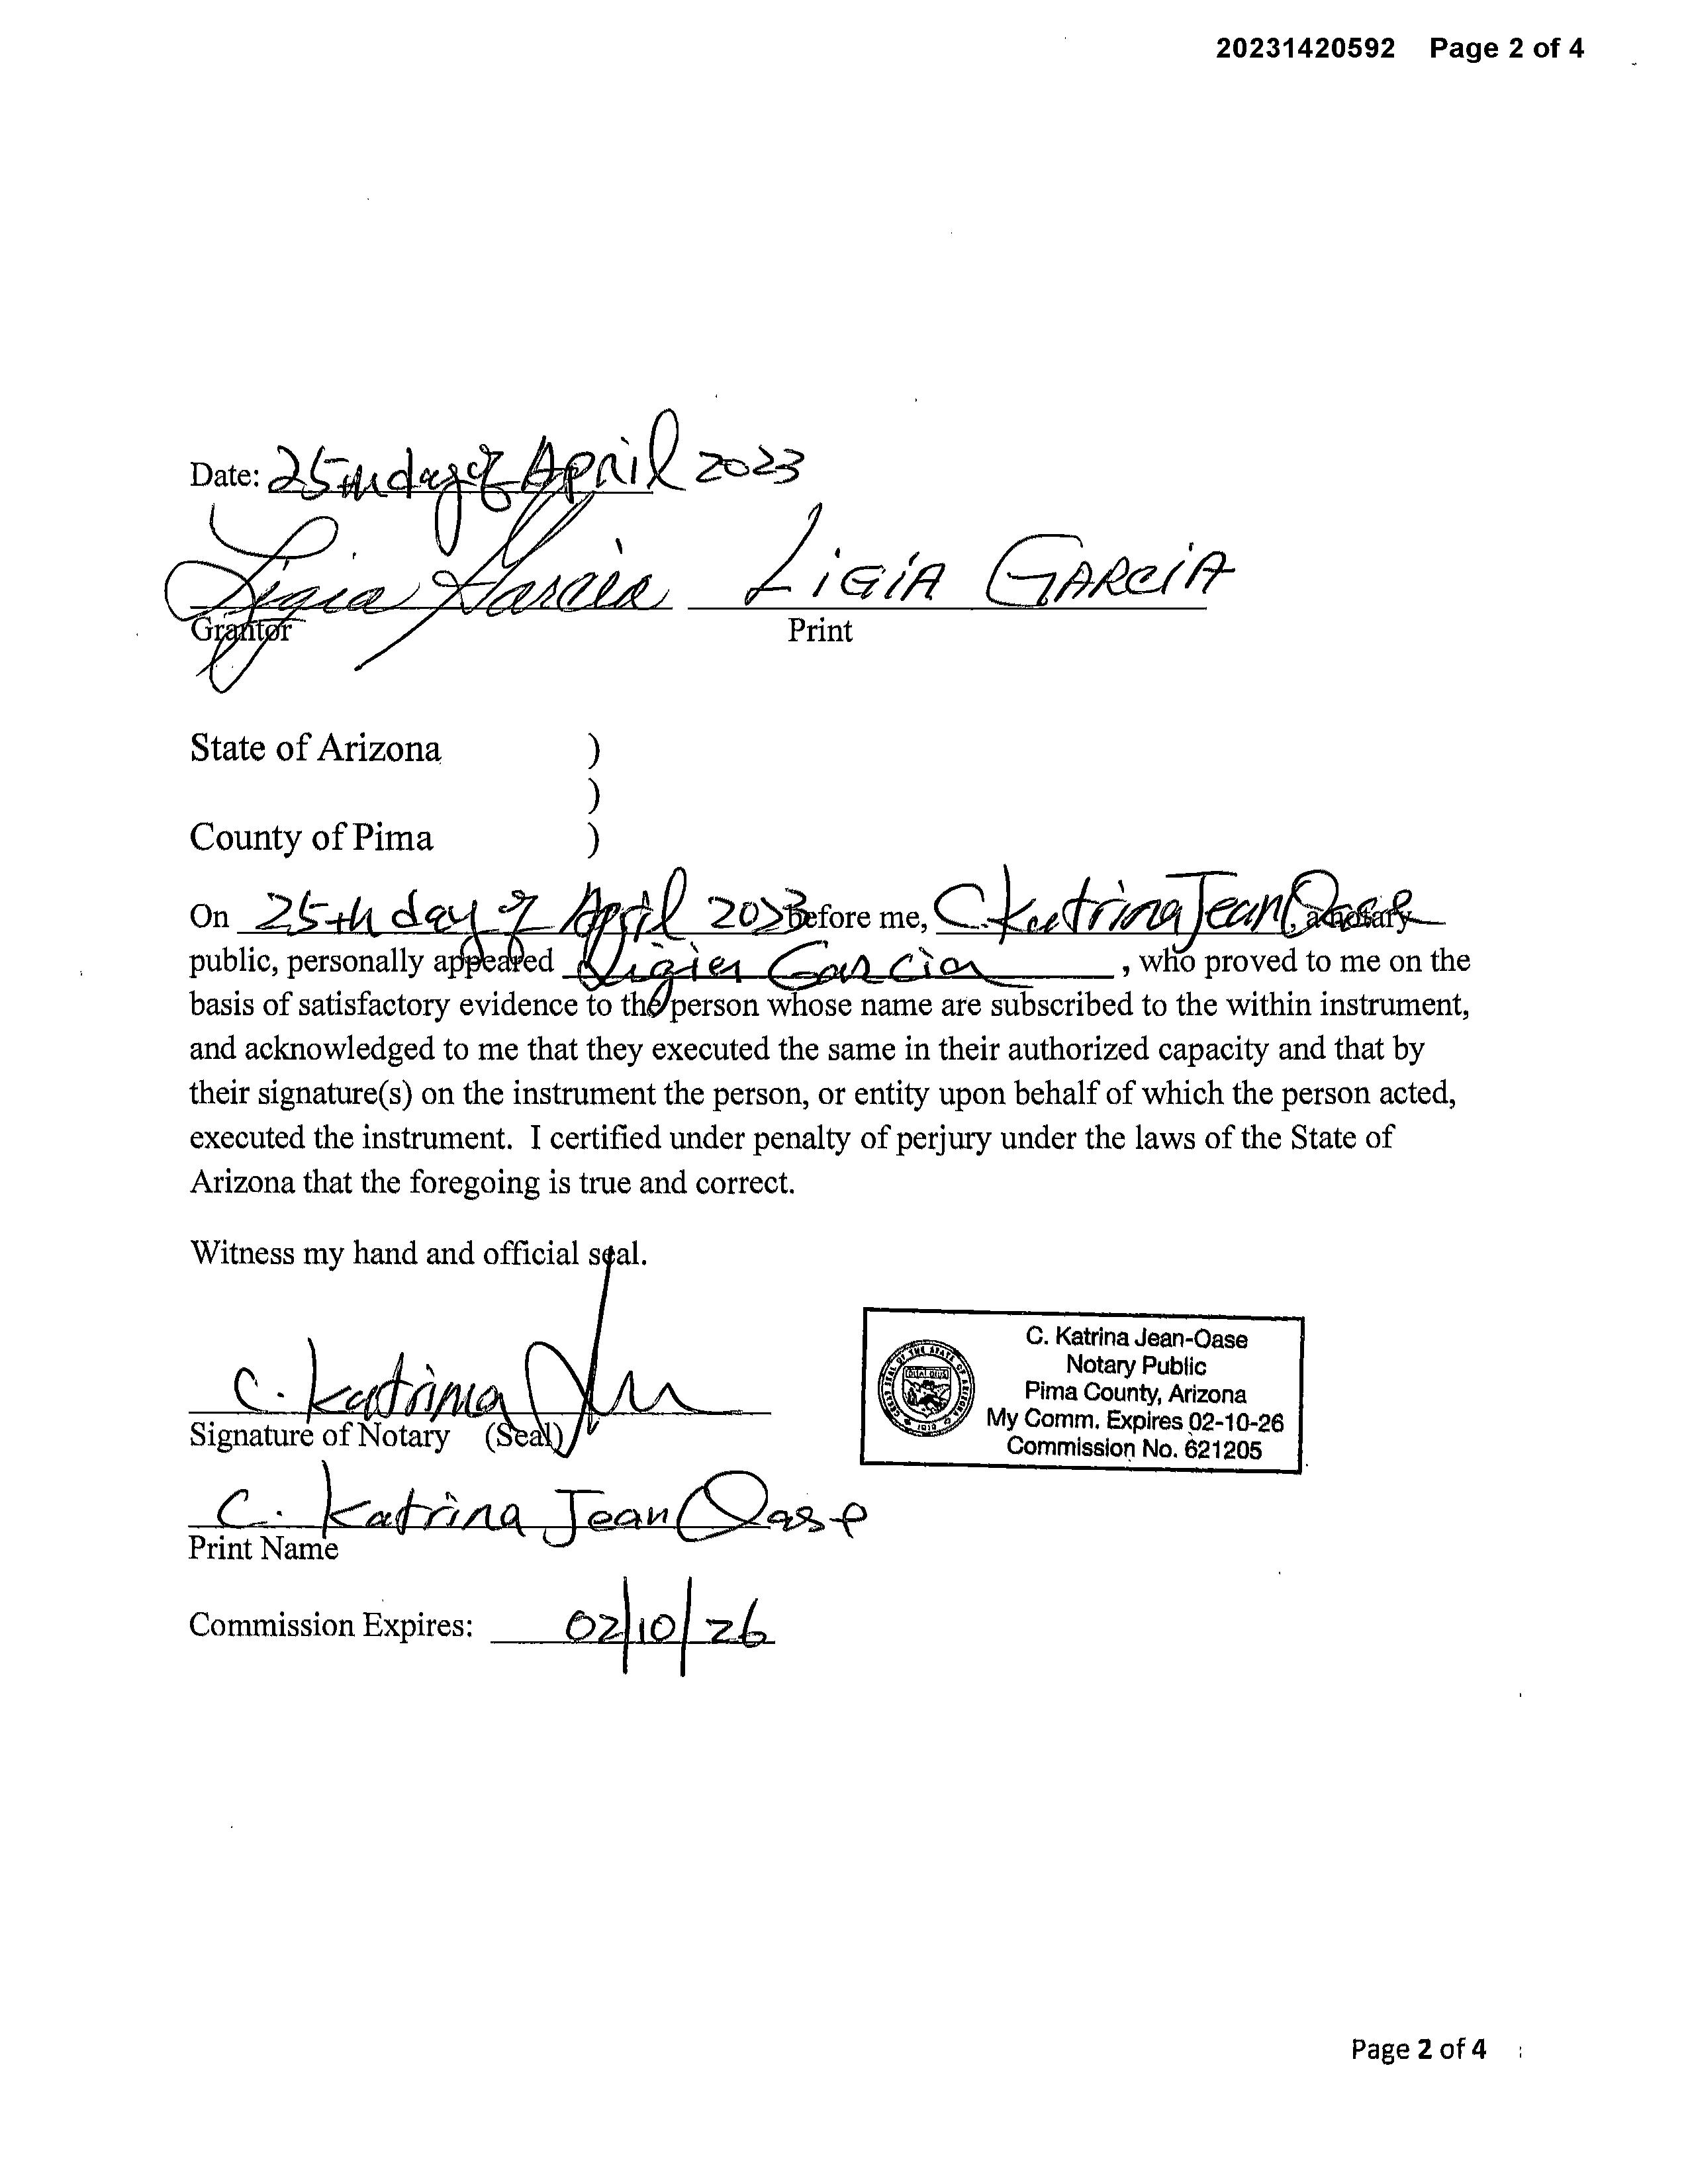 20231420592 Page 2 of 4
Date: 25th day of April 2023
Ligia Garcia LIGIA GARCIA
Grantor Print
State of Arizona )
)
County of Pima )
On 25th day of April 2023 before me, C. Katrina Jean Oase, a notary
public, personally appeared Ligia Garcia, who proved to me on the
basis of satisfactory evidence to the person whose name are subscribed to the within instrument,
and acknowledged to me that they executed the same in their authorized capacity and that by
their signature(s) on the instrument the person, or entity upon behalf of which the person acted,
executed the instrument. I certified under penalty of perjury under the laws of the State of
Arizona that the foregoing is true and correct.
Witness my hand and official seal.
C. Katrina
Signature of Notary (Seal)
C. Katrina Jean-Oase
Notary Public
Pima County, Arizona
My Comm. Expires 02-10-26
Commission No. 621205
C. Katrina Jean Oase
Print Name
Commission Expires: 02/10/26
Page 2 of 4